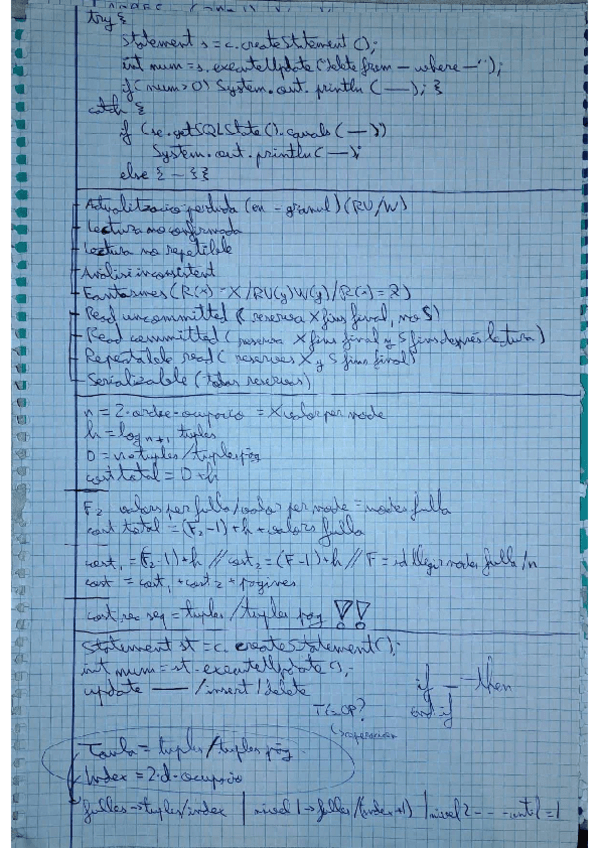 try {
Statement s = c.createStatement();
int num = s.executeUpdate("delete from — where —");
if (num > 0) System.out.println(—); }
catch {
if (se.getSQLState().equals(—))
System.out.println(—);
else { — } }
Actualització perduda (en - gránul) (RU/W)
Lectura no confirmada
Lectura no repetible
Anàlisi inconsistent
Fantasmes (R(x) - X / RU(y) W(y) / R(x) = Z)
Read uncommitted (reserva X fins final, no S)
Read committed (reserva X fins final y S fins després lectura)
Repeatable read (reserves X y S fins final)
Serializable (totas reservas)
n = 2·ordre·ocupació = X valor per node
h = log n+1 tuples
D = no tuples / tuples pàg
cost total = D + h
F2 valors per fulla / valor per node = nodes fulla
cost total = (F2 - 1) + h + valors fulla
cost1 = (F2 - 1) + h // cost2 = (F - 1) + h // F = nodes fulla / n
cost = cost1 + cost2 + pagines
cost rec seq = tuples / tuples pag !!
Statement st = c.createStatement();
int num = st.executeUpdate();
update — / insert / delete
if — then
TG=OP? end if
Taula = tuples / tuples pàg
Index = 2·d·ocupació
fulles → tuples / index | nivel 1 → fulles / (index+1) | nivel 2 - - - until = 1